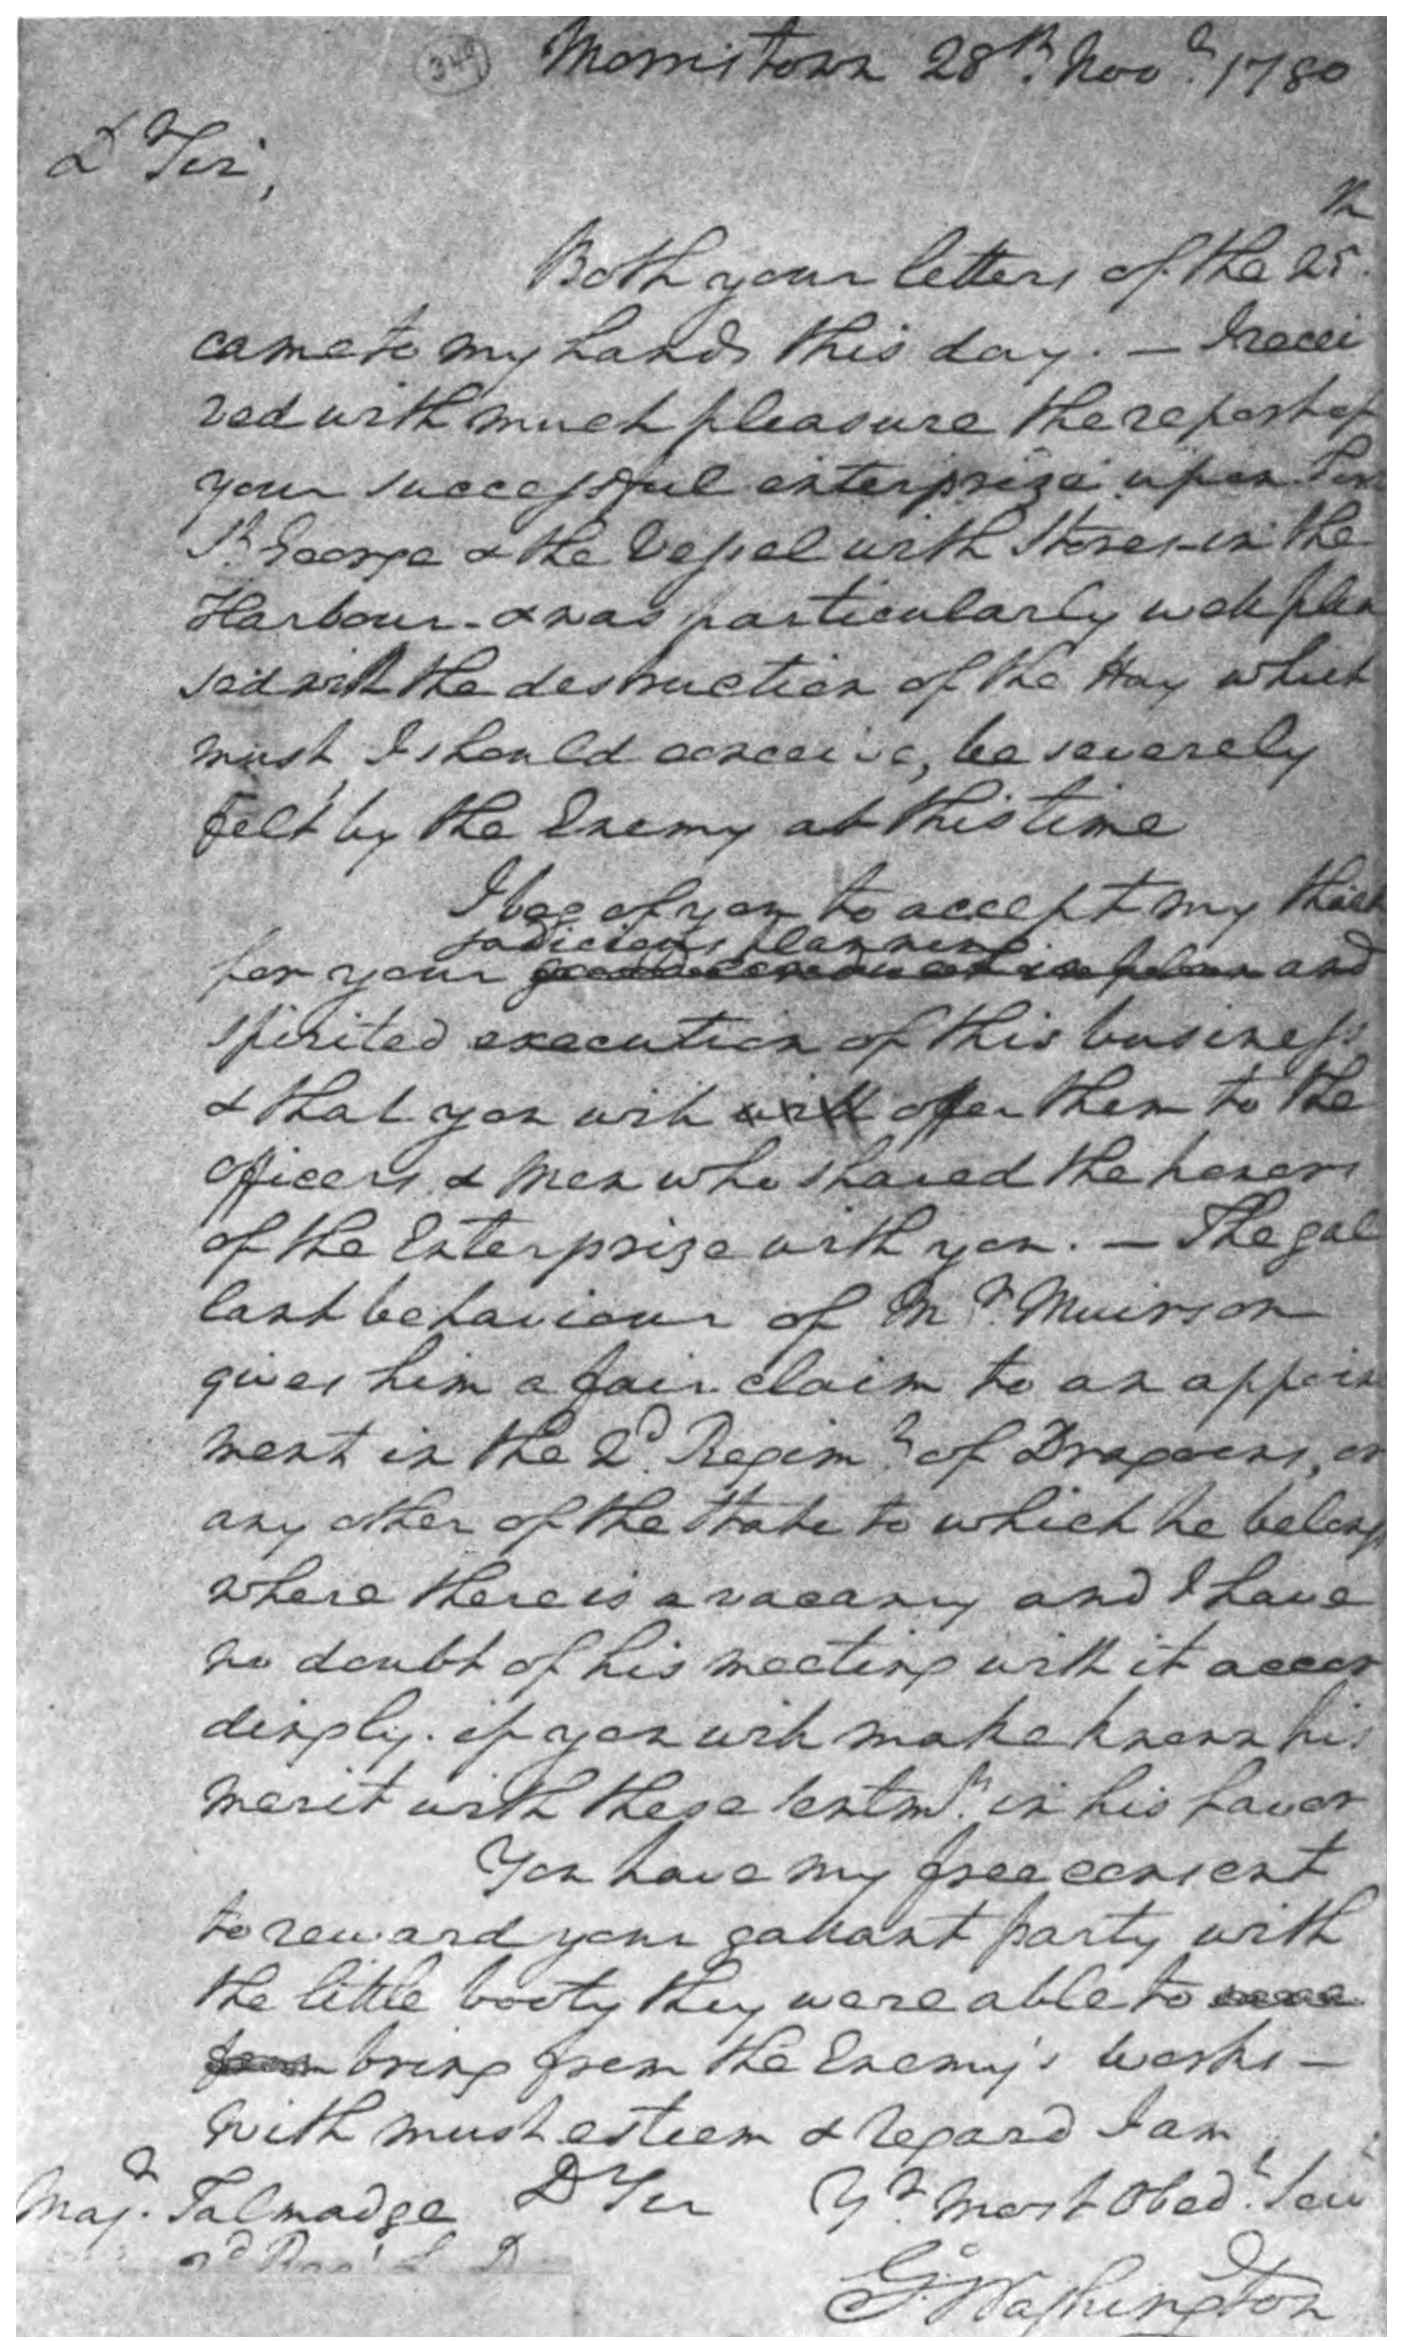 349 Morristown 28th. Novr. 1780
Dr Sir,
Both your letters of the 25th.
came to my hands this day. — I recei
ved with much pleasure the report of
your successful enterprize upon Fort
St. George & the Vessel with Stores in the
Harbour - & was particularly well plea
sed with the destruction of the Hay which
must, I should conceive, be severely
felt by the Enemy at this time
I beg of you to accept my thanks
judicious planning
for your good conduct in plan and
spirited execution of this business
& that you will will offer them to the
officers & men who shared the honors
of the Enterprize with you. — The gal
lant behaviour of Mr. Muirson
gives him a fair claim to an appoin
ment in the 2d. Regimt. of Dragoons, or
any other of the State to which he belongs
where there is a vacancy and I have
no doubt of his meeting with it accor
dingly. if you will make known his
merit with these sentimts. in his favor
You have my free consent
to reward your gallant party with
the little booty they were able to
from bring from the Enemy's works —
With much esteem & regard I am
Dr Sir Yr. Most Obedt. Serv
Majr. Talmadge
2d Regt L D
G: Washington